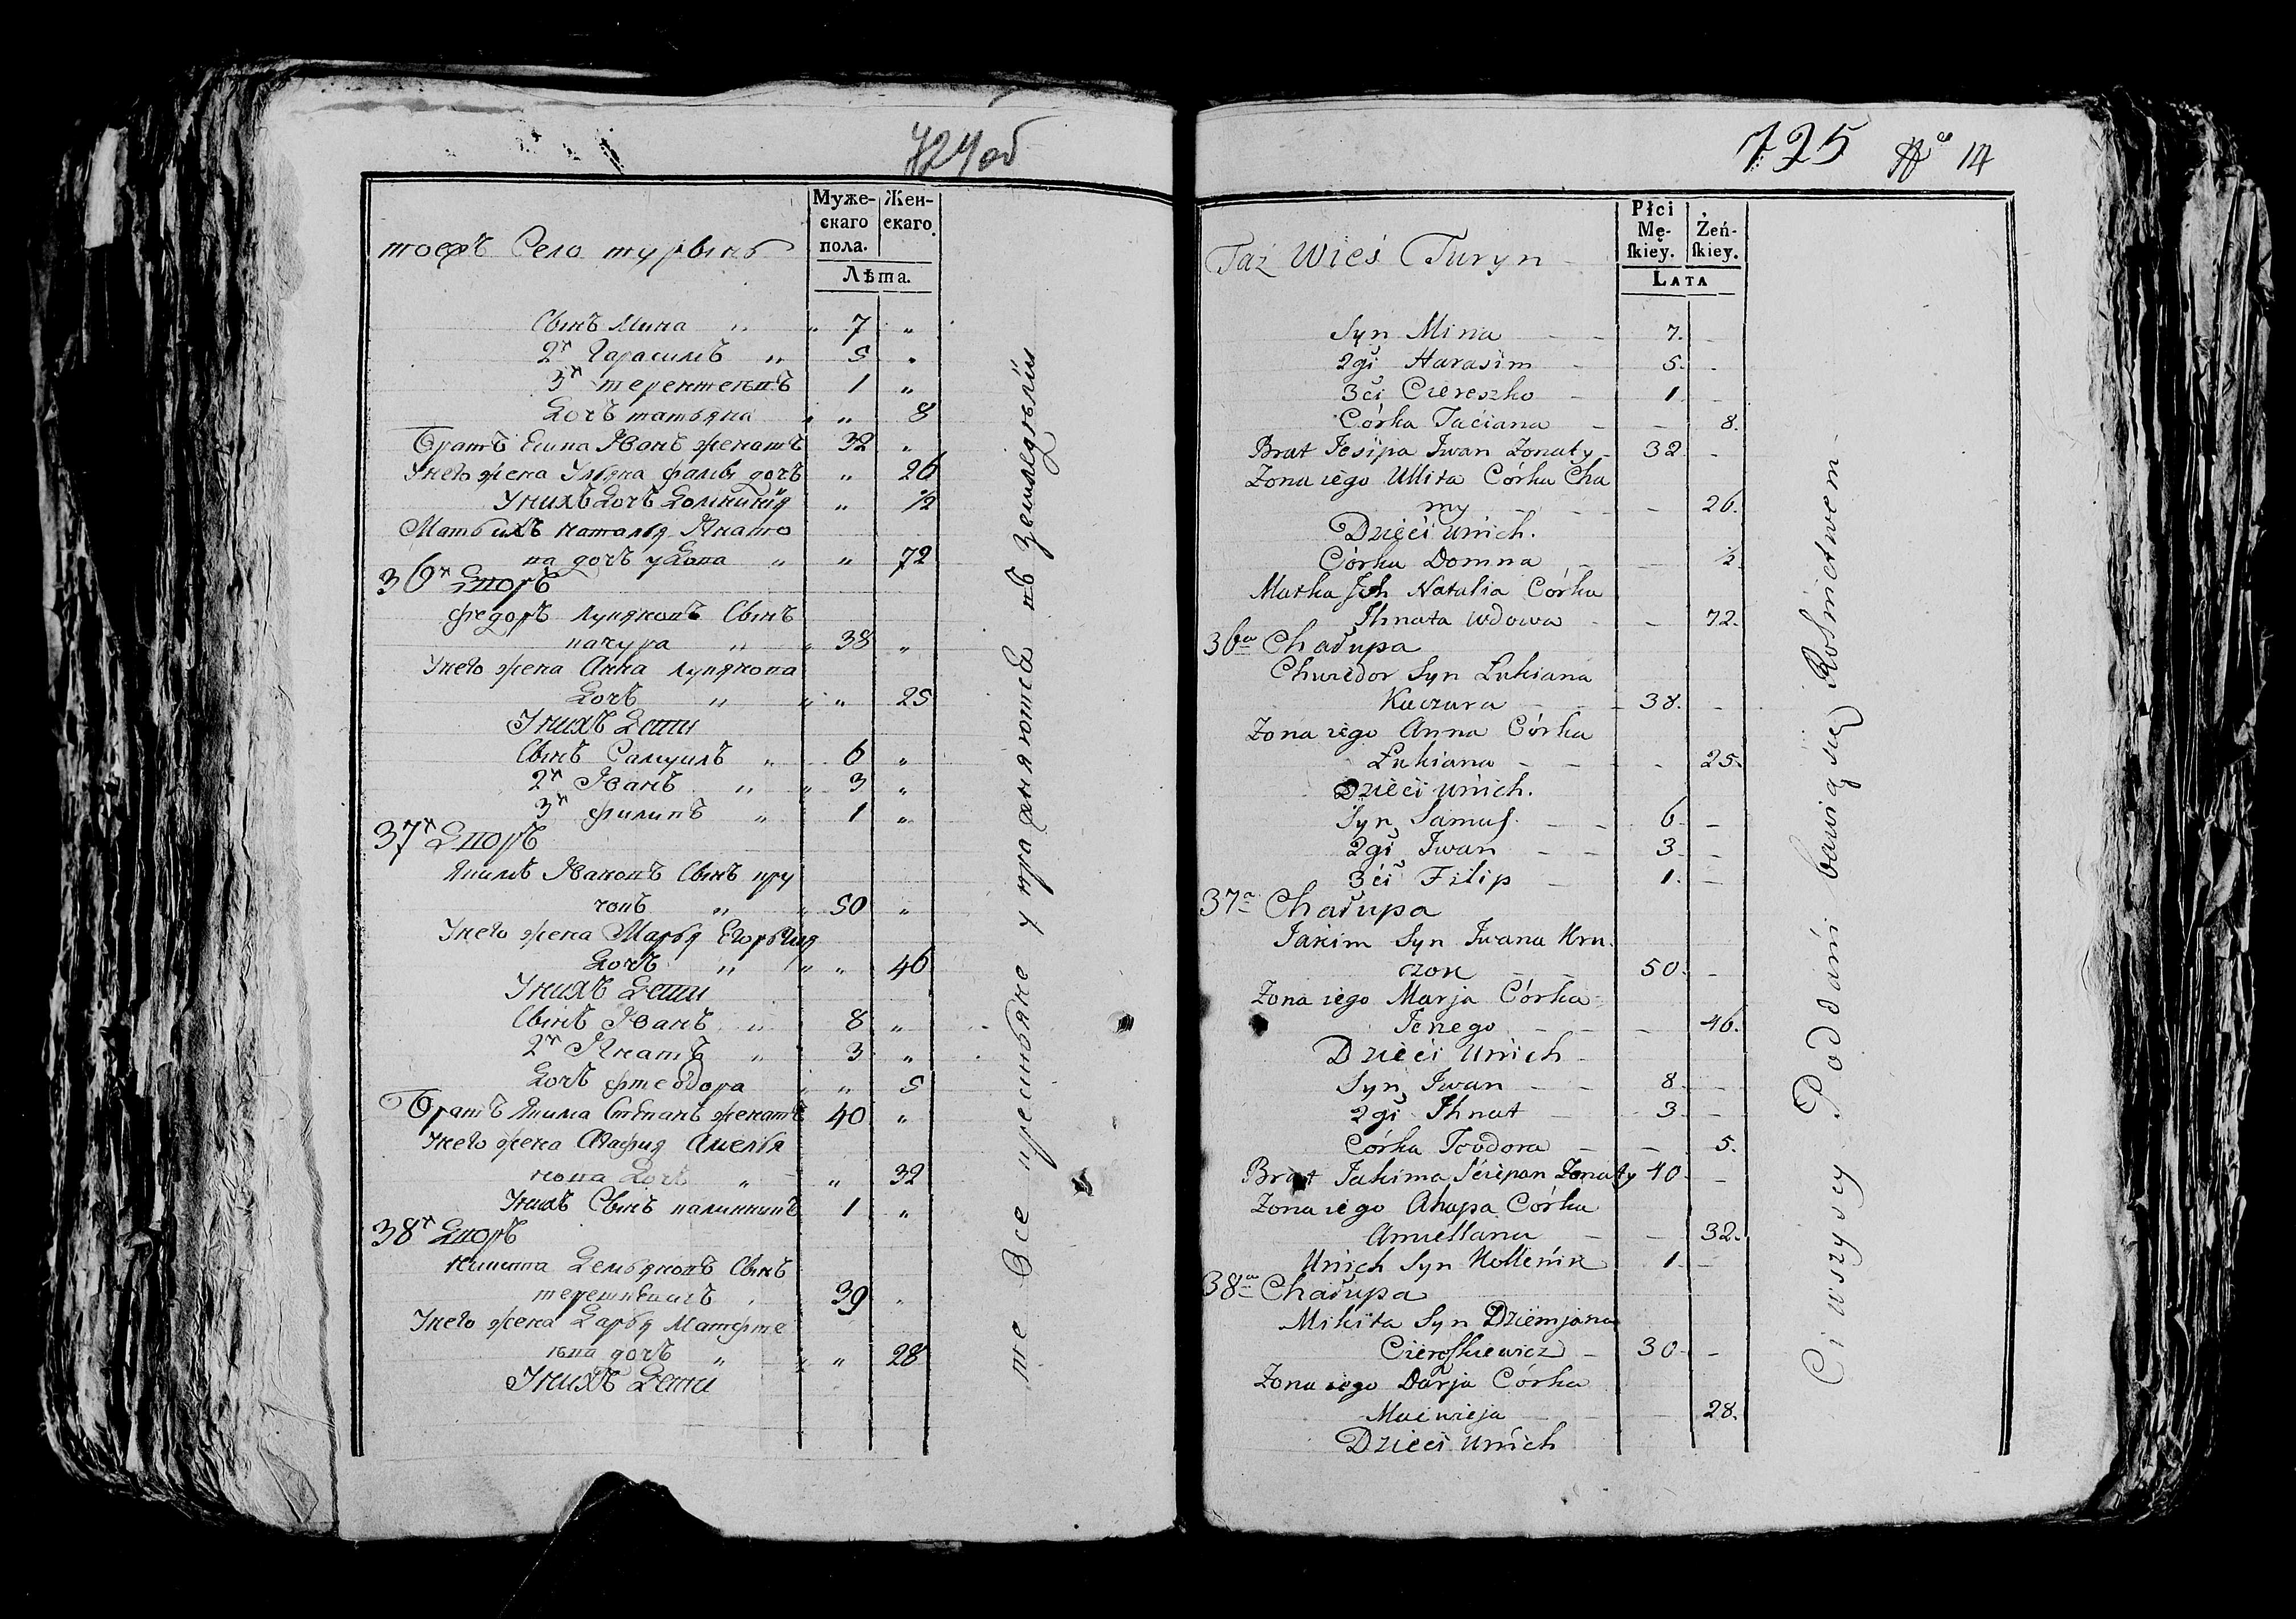 724об
Муже-
скаго
пола.
Жен-
скаго.
Лѣта.
тоежъ Село турынь
Сынъ Мина „ „ 7 „
2й Гарасимъ „ 5 „
3й терентей 1 „
Дочь татьяна „ „ 8
Братъ Есипа Иванъ женатъ 32 „
Унего жена Ульяна дочь „ 26
Унихъ Дочь „ ½
Мать ихъ наталья Игнато
ва дочь удова „ „ 72
36й Дворъ
федоръ Лукяновъ Сынъ
качура „ „ 38 „
Унего жена Анна Лукянова
Дочь „ „ „ 25
Унихъ Дети
Сынъ Самуилъ „ 6 „
2й Иванъ „ „ 3 „
3й филипъ „ 1 „
37й Дворъ
Якимъ Ивановъ Сынъ кру
чокъ „ „ 50 „
Унего жена Марья
Дочь „ „ „ 46
Унихъ Дети
Сынъ Иванъ „ 8 „
2й Игнатъ „ 3 „
Дочь феодора „ „ 5
Братъ Якима Степанъ женатъ 40 „
Унего жена Агафия Амелья
нова Дочь „ „ 32
Унихъ Сынъ 1 „
38й Дворъ
Никита Демьяновъ Сынъ
39 „
Унего жена Дарья Матфие
ева дочь „ „ „ 28
Унихъ Дети
те Все крестьяне упражняются въ земледелии
725 No 14
Płci
Mę-
ſkiey.
Żeń-
ſkiey.
LATA
Taż Wieś Turyn
Syn Mina - - 7. -
2gi Harasim - 5. -
3ci Ciereszko - 1. -
Córka Taciana - - 8.
Brat Jesipa Iwan Żonaty - 32 -
Żona iego Ullita Córka Cha
my - - - 26.
Dzieci unich.
Córka Domna - - ½
Matka Ich Natalia Córka
Ihnata wdowa - - 72.
36a Chałupa
Chwiedor Syn Łukiana
Kaczura - - 38. -
Żona iego Anna Córka
Łukiana - - - 25.
Dzieci unich.
Syn Samuſ. - - 6. -
2gi Iwan - - 3. -
3ci Filip - 1. -
37a Chałupa
Jakim Syn Iwana Kru
czok - - 50. -
Żona iego Marja Córka
Jerzego - - - 46.
Dzieci unich
Syn Iwan - - 8. -
2gi Ihnat - 3. -
Córka Todora - - 5.
Brat Jakima Ściepan Żonaty 40. -
Żona iego Ahapa Córka
Amiellana - - 32.
Unich Syn Kollenik 1. -
38a Chałupa
Mikita Syn Dziemjana
Cierеſzkiewicz - 30. -
Żona iego Darja Córka
Maćwieja - - 28.
Dzieci unich
Ci wszyscy Poddani bawią się Rolnictwem